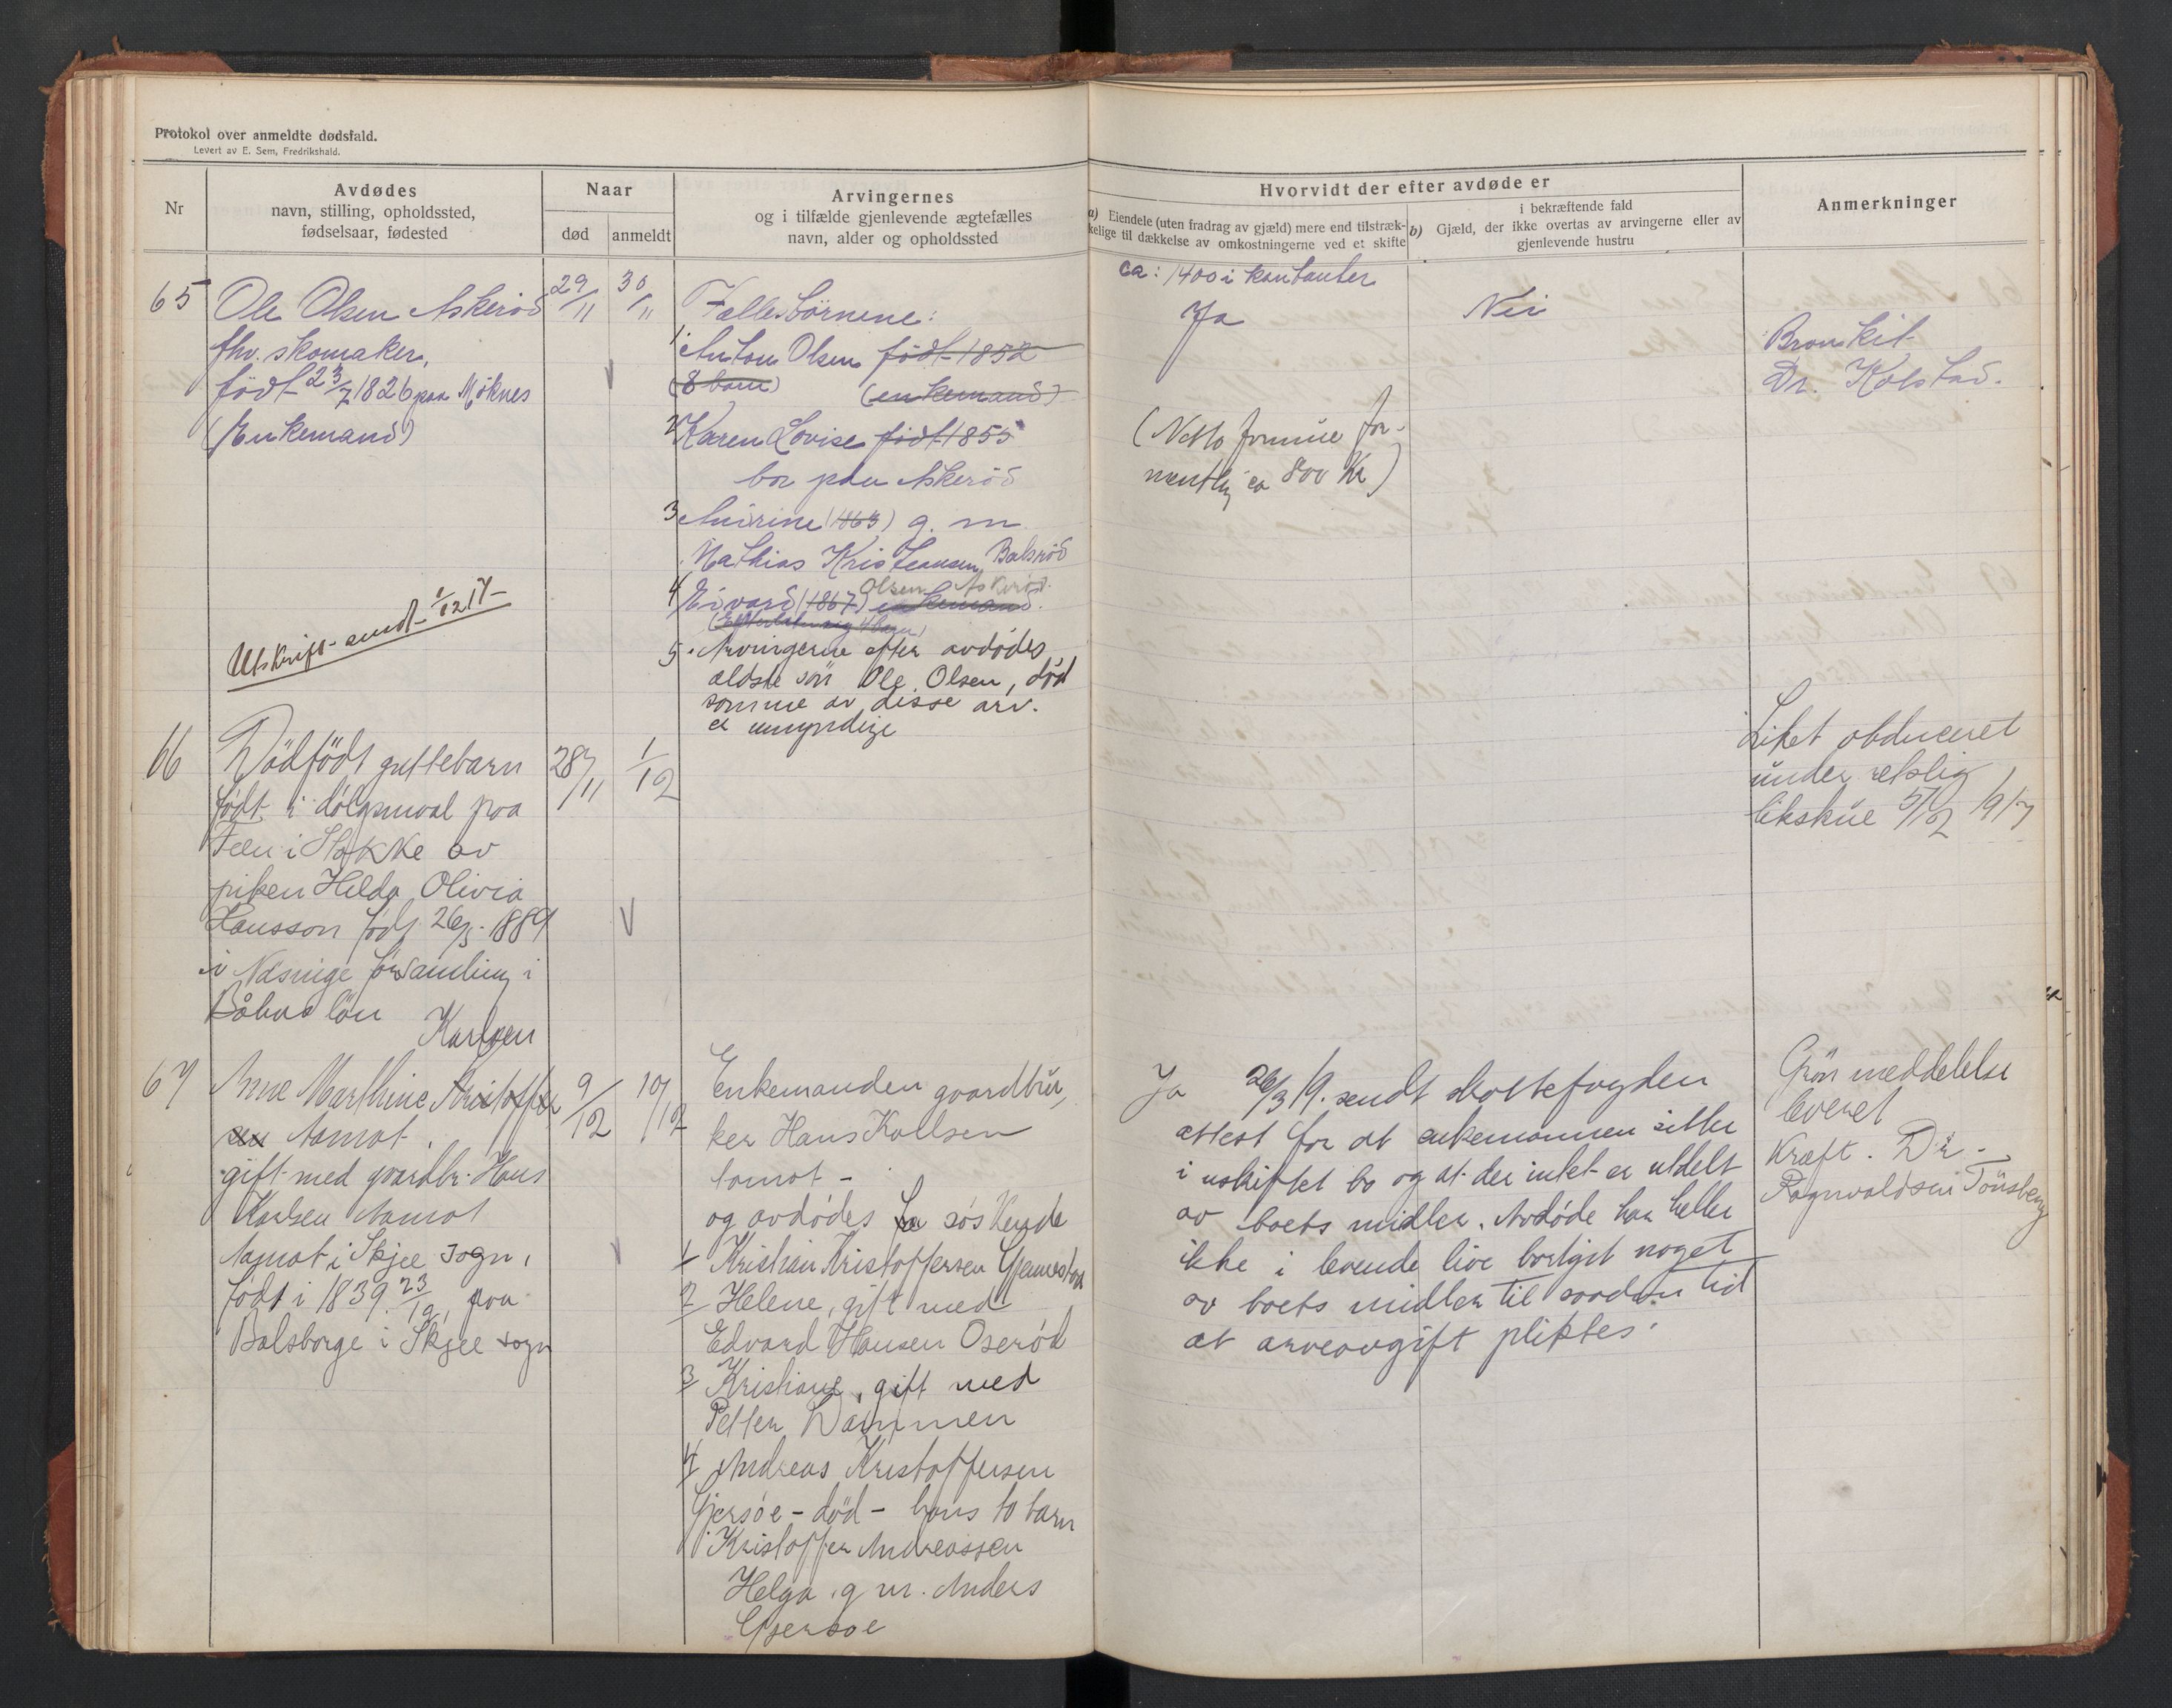 Protokol over anmeldte dødsfald.
Levert av E. Sem, Fredrikshald.
Nr
Avdødes
navn, stilling, opholdssted,
fødselsaar, fødested
Naar
død
anmeldt
Arvingernes
og i tilfælde gjenlevende ægtefælles
navn, alder og opholdssted
Hvorvidt der efter avdøde er
a) Eiendele (uten fradrag av gjæld) mere end tilstræk-
kelige til dækkelse av omkostningerne ved et skifte
i bekræftende fald
b) Gjæld, der ikke overtas av arvingerne eller av
gjenlevende hustru
Anmerkninger
65
Ole Olsen Askeröd
fhv. skomaker,
född 23/7 1826 paa Möknes
(Enkemand)
Utskrift sendt
29/11
30/11
Fællesbörnene:
1 Anton Olsen födt 1852
(8 barn) (enkemand)
2 Karen Lovise födt 1855
bor paa Askeröd
3 Andrine (1863) g. m
Mathias Kristeansen Balsröd
Olsen Askeröd.
4 Edvard (1867) enkemand.
5. Arvingerne efter avdödes
ældste sön Ole Olsen, död
somme av disse arv.
er umyndige
ca: 1400 i kontanter
Ja
Nei
(Netto formue for-
mentlig ca 800 Kr)
Bronkit
Dr. Kolstad.
66
Dödfödt guttebarn
födt i dölgsmaal paa
Feen i Stokke av
piken Hilda Olivia
Hansson födt 26/3 1889
i Näsinge församling i
Båhus län
28/11
1/12
Liket obduceret
under retslig
likskue 5/12 1917
67
Karlsen
Anne Marthine Kristoffer
sen Aamot.
gift med gaardbr. Hans
Karlsen Aamot
Aamot i Skjee sogn,
født i 1839 23/12, paa
Bolsborge i Skjee sogn
9/12
10/12
Enkemanden gaardbru-
ker Hans Karlsen
Aamot -
og avdödes søskende
1 Kristian Kristoffersen Gjennestad
2 Helene, gift med
Edvard Hansen Oseröd
3 Kristiane, gift med
Petter Dammen
4 Andreas Kristoffersen
Gjersöe - död - hans to barn
Kristoffer Andreassen
Helga g m. Anders
Gjersoe
Ja
26/3 19. sendt skattefogden
attest for at enkemannen sitter
i uskiftet bo og at der intet er utdelt
av boets midler. Avdöde har heller
ikke i levende live bortgit noget
av boets midler til saadan tid
at arveavgift pliktes.
Grön meddelelse
leveret
Kræft. Dr.
Ragnvaldsen Tönsberg